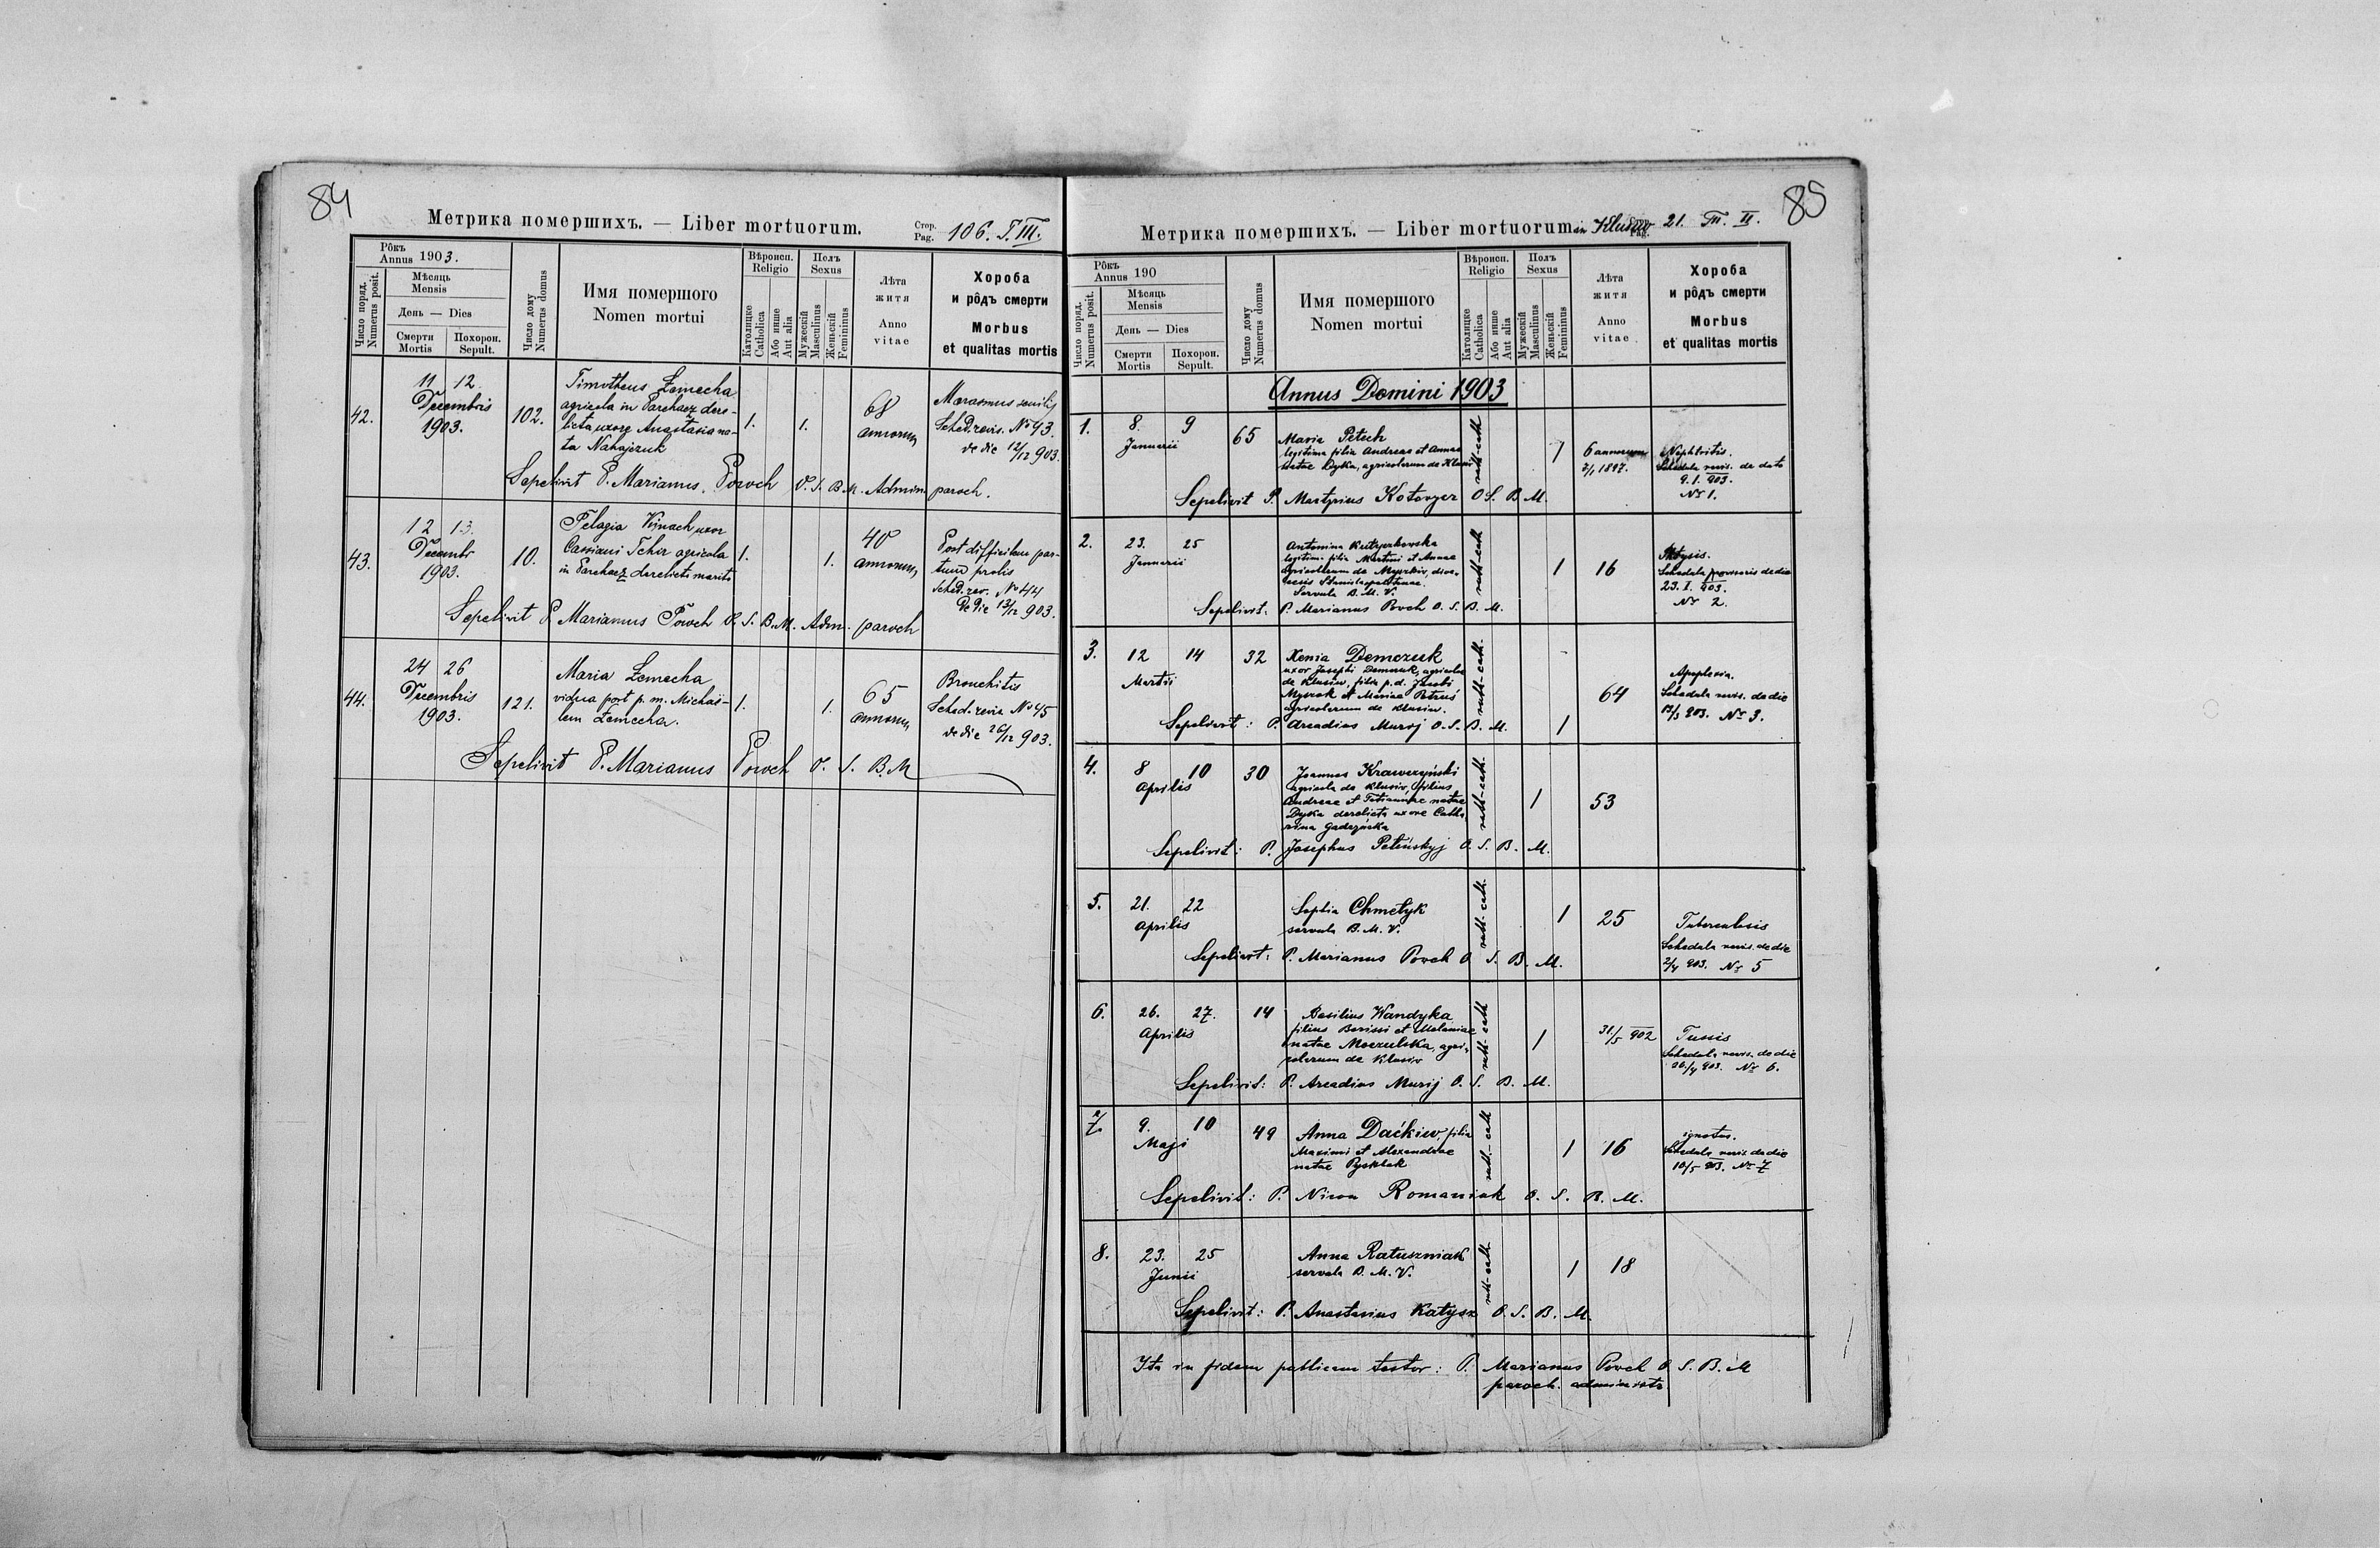 84
Метрика помершихъ. — Liber mortuorum.
Стор.
Pag.
106. T. III.
Рôкъ
Annus 1903.
Число поряд.
Numerus posit.
Мѣсяць
Mensis
День — Dies
Смерти
Mortis
Похорон.
Sepult.
Число дому
Numerus domus
Имя помершого
Nomen mortui
Вѣроисп.
Religio
Католицке
Catholica
Або инше
Aut alia
Полъ
Sexus
Мужескій
Masculinus
Женьскій
Femininus
Лѣта
житя
Anno
vitae
Хороба
и рôдъ смерти
Morbus
et qualitas mortis
42.
11 12.
Decembris
1903.
102.
Timotheus Łemecha
agricola in Parchacz dere-
licta uxore Anastasia na-
ta Nahajczuk
1.
1.
68
annorum
Marasmus senilis
Sched. revis. No 43.
de die 12/12 903.
Sepelivit P. Marianus Powch O. S. B. M. Admin. paroch.
43.
12 13.
Decembr
1903.
10.
Pelagia Kynach uxor
Cassiani Tchir agricola
in Parchacz derelicto marito
1.
1.
40
annorum
Post difficilem par-
tum prolis
Sched. rev. No 44
de die 13/12 903.
Sepelivit P. Marianus Powch O. S. B. M. Adm. paroch
44.
24 26
Decembris
1903.
121.
Maria Łemecha
vidua post p. m. Michaë-
lem Łemecha.
1.
1.
65
annorum
Bronchitis
Sched. revis No 45
de die 26/12 903.
Sepelivit P. Marianus Powch O. S. B. M
85
Метрика помершихъ. — Liber mortuorum in Klusów
Стор.
Pag.
21. T. II.
Рôкъ
Annus 190
Число поряд.
Numerus posit.
Мѣсяць
Mensis
День — Dies
Смерти
Mortis
Похорон.
Sepult.
Число дому
Numerus domus
Имя помершого
Nomen mortui
Вѣроисп.
Religio
Католицке
Catholica
Або инше
Aut alia
Полъ
Sexus
Мужескій
Masculinus
Женьскій
Femininus
Лѣта
житя
Anno
vitae
Хороба
и рôдъ смерти
Morbus
et qualitas mortis
Annus Domini 1903
1.
8. 9
Januarii
65
Maria Petech
legitima filia Andreae et Annae
natae Dyka, agricolarum de Klusiw
ruth-cath
1
6 annorum
2/1 1897.
Nephtritis.
Schedula revis. de dato
9. I. 903.
Nr 1.
Sepelivit P. Martyrius Kotowycz O. S. B. M.
2.
23. 25
Januarii
Antonina
legitima filia Martini et Annae
agricolarum de Myszkiw, dioe-
cesis Stanislaopolitanae.
Servula B. M. V.
ruth-cath
1
16
Phtysis.
Schedula provisoris de die
23. I. 903.
Nr 2.
Sepelivit: P. Marianus Powch O. S. B. M.
3.
12 14
Martii
32
Xenia Demczuk
uxor Josephi Demczuk, agricolae
de Klusiw, filia p. d. Jacobi
Myszok et Mariae Petruś
agricolarum de Klusiw.
ruth-cath.
1
64
Apoplexia.
Schedula revis. de die
13/3 903. Nr 3.
Sepelivit: P. Arcadius Muryj O. S. B. M.
4.
8 10
Aprilis
30
Joannes Krawczyński
agricola de Klusiw, filius
Andreae et Tatiannae natae
Dyka derelicta uxore Catha
rina
ruth-cath.
1
53
Sepelivit: P. Josephus O. S. B. M.
5.
21. 22
Aprilis
Sophia Chmetyk
servula B. M. V.
ruth-cath.
1
25
Tuberculosis
Schedula revis. de die
2/4 903. Nr 5
Sepelivit: P. Marianus Powch O. S. B. M.
6.
26. 27.
Aprilis
14
Basilius Wandyka
filius Borissi et Melaniae
natae Moczulska, agri-
colarum de Klusiw
ruth-cath
1
31/5 902
Tussis
Schedula revis. de die
26/4 903. Nr 6.
Sepelivit: P. Arcadius Muryj O. S. B. M.
7.
9. 10
Maji
49
Anna Daćkiw, filia
Maximi et Alexandrae
natae Pysklak
ruth.-cath
1
16
ignotus.
Schedula revis. de die
10/5 903. Nr 7
Sepelivit: P. Nicon Romaniuk O. S. B. M.
8.
23. 25
Junii
Anna Ratuszniak
servula B. M. V.
ruth-cath.
1
18
Sepelivit: P. Anastasius Katysz O. S. B. M.
Ita in fidem publicam testor: P. Marianus Powch O. S. B. M
paroch. administr.